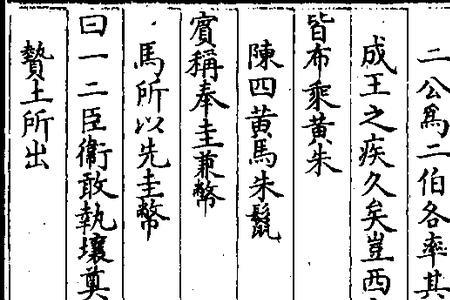 二公爲二伯各率其
成王之疾久矣豈西
皆布乘黄朱
陳四黄馬朱鬣
賓稱奉圭兼幣
馬所以先圭幣
曰一二臣衛敢執壤奠
贄土所出